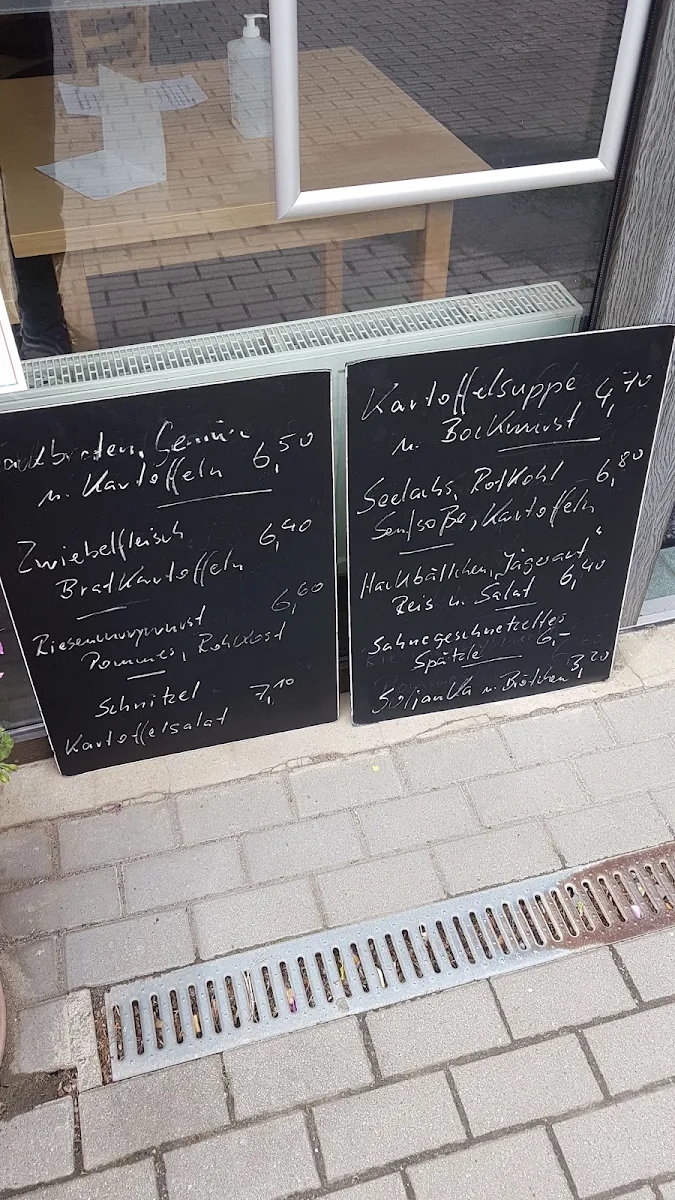 Gemüse
u. Kartoffeln 6,50
Zwiebelfleisch 6,40
Bratkartoffeln
6,60
Pommes, Rohkost
Schnitzel 7,10
Kartoffelsalat
Kartoffelsuppe 4,70
u. Bockwurst
Seelachs, Rotkohl 6,80
Senfsoße, Kartoffeln
Hackbällchen, Jägerart,"
Reis u. Salat 6,40
Sahnegeschnetzeltes
Spätzle 6,-
Soljanka u. Brötchen 3,20